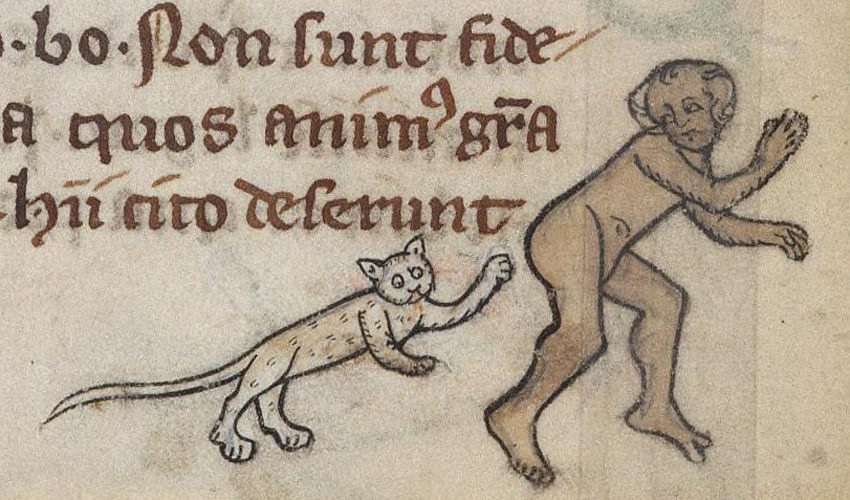 bo·Non sunt fide
a quos animꝰ gr̄a
hii cito deserunt